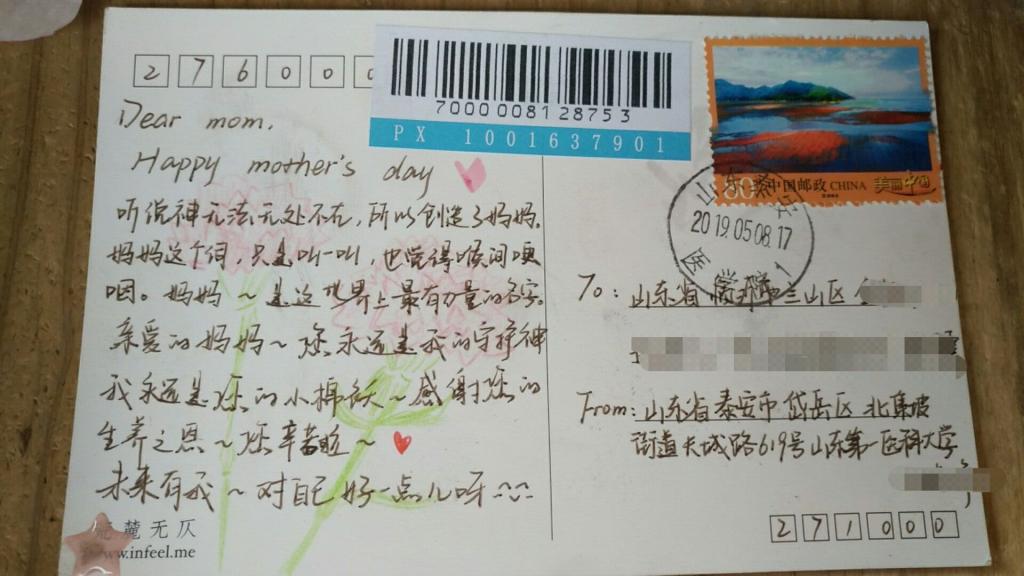 276000
Dear mom,
Happy mother's day
听说神无法无处不在,所以创造了妈妈.
妈妈这个词,只是叫一叫,也觉得喉间哽
咽。妈妈~是这世界上最有力量的名字.
亲爱的妈妈~您永远是我的守护神
我永远是您的小棉袄~感谢您的
生养之恩~您辛苦啦~
未来有我~对自己好一点儿呀~
麓无仞
www.infeel.me
7000 0081 28753
PX 1001637901
80 中国邮政 CHINA 美丽中国
山东泰安
2019.05.08.17
医学院 1
To: 山东省 临沂市兰山区
From: 山东省泰安市岱岳区
街道长城路619号山东第一医科大学
271000